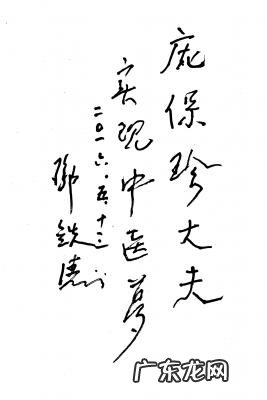 庞保珍大夫
实现中医梦
二〇一六.五.十三
邓铁涛
广东龙网